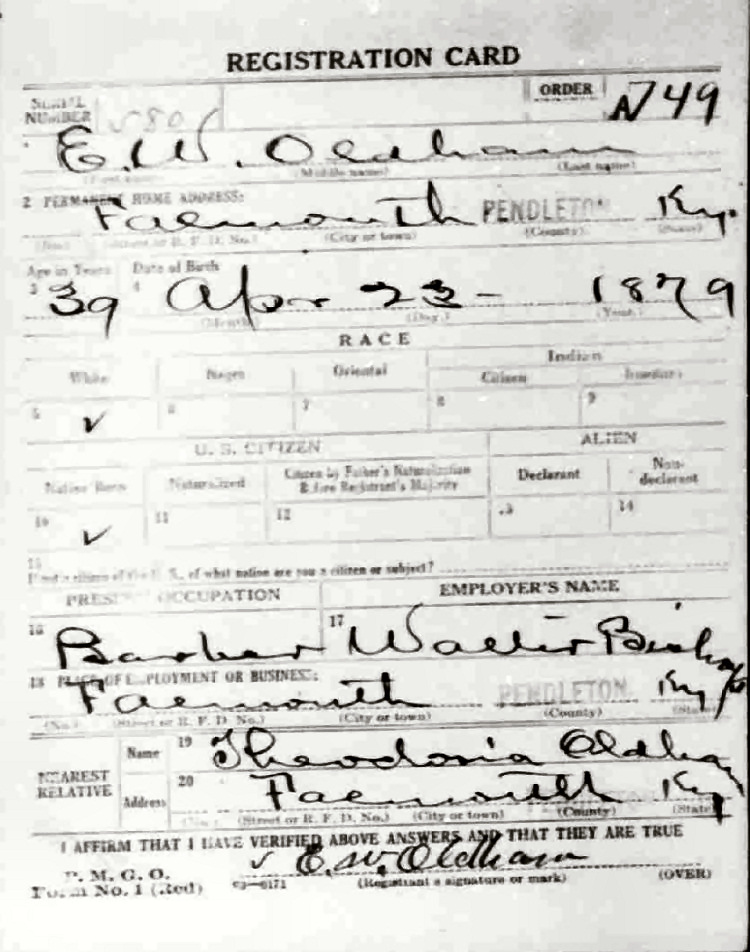 REGISTRATION CARD
SERIAL NUMBER ORDER A749
E. W. Oldham
(Middle name) (Last name)
2 PERMANENT HOME ADDRESS:
Falmouth PENDLETON Ky.
(No.) (Street or R. F. D. No.) (City or town) (County) (State)
Age in Years Date of Birth
3 39 4 Apr 23 - 1879
(Month) (Day.) (Year.)
RACE
White Negro Oriental Indian
Citizen
5 ✓ 6 7 8 9
U. S. CITIZEN ALIEN
Native Born Naturalized Citizen by Father's Naturalization Before Registrant's Majority Declarant Non-declarant
10 ✓ 11 12 13 14
15
If not a citizen of the U. S., of what nation are you a citizen or subject?
PRESENT OCCUPATION EMPLOYER'S NAME
16 Barber 17 Walter Bishop
18 PLACE OF EMPLOYMENT OR BUSINESS:
Falmouth PENDLETON Ky
(No.) (Street or R. F. D. No.) (City or town) (County) (State)
NEAREST RELATIVE
Name 19 Theodosia Oldham
Address 20 Falmouth Ky
(No.) (Street or R. F. D. No.) (City or town) (County) (State)
I AFFIRM THAT I HAVE VERIFIED ABOVE ANSWERS AND THAT THEY ARE TRUE
✓ E. W. Oldham
P. M. G. O.
Form No. 1 (Red) 03—6171 (Registrant's signature or mark) (OVER)